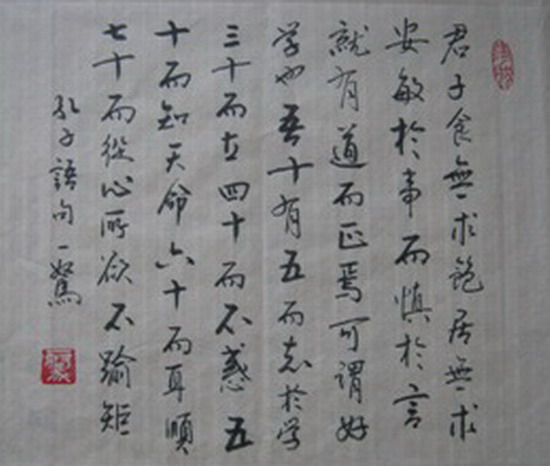 君子食無求飽居無求
安敏於事而慎於言
就有道而正焉可謂好
学也吾十有五而志於学
三十而立四十而不惑五
十而知天命六十而耳順
七十而從心所欲不踰矩
孔子語句一駑